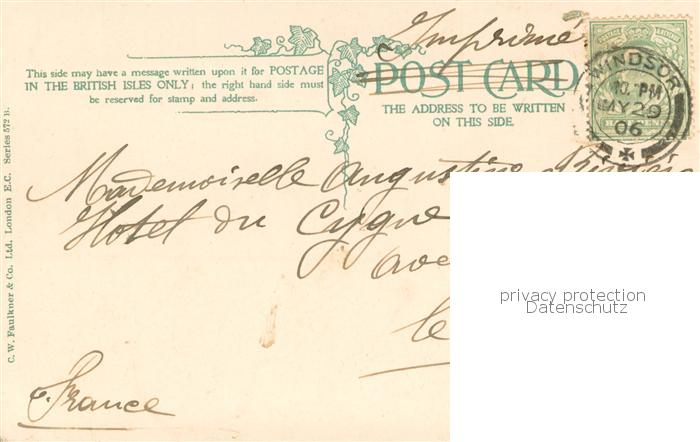 Imprimé
This side may have a message written upon it for POSTAGE
IN THE BRITISH ISLES ONLY; the right hand side must
be reserved for stamp and address.
POST CARD
THE ADDRESS TO BE WRITTEN
ON THIS SIDE.
WINDSOR
10. PM
MY 29
06
Mademoiselle Augustine
Hotel du Cygne
ave
le
France
C. W. Faulkner & Co. Ltd. London E.C. Series 572 B.
privacy protection
Datenschutz